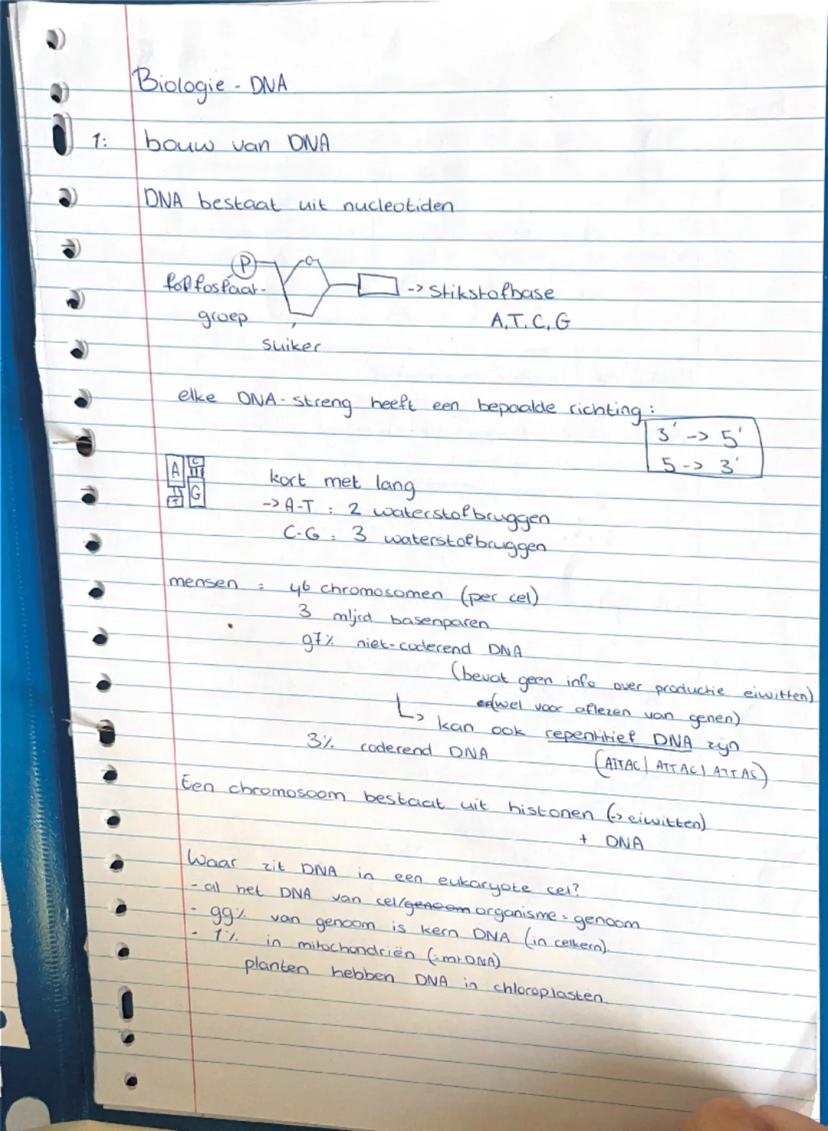 Biologie - DNA
1: bouw van DNA
DNA bestaat uit nucleotiden
P
O
fosfaat-
groep
suiker
-> stikstofbase
A, T, C, G
elke DNA-streng heeft een bepaalde richting:
3' -> 5'
5 -> 3'
A C
T G
kort met lang
-> A-T : 2 waterstofbruggen
C-G : 3 waterstofbruggen
mensen = 46 chromosomen (per cel)
3 mljrd basenparen
97% niet-coderend DNA
(bevat geen info over productie eiwitten)
(wel voor aflezen van genen)
↳ kan ook repentitief DNA zijn
3% coderend DNA (ATTAC | ATTAC | ATTAC)
Een chromosoom bestaat uit histonen (-> eiwitten)
+ DNA
Waar zit DNA in een eukaryote cel?
- al het DNA van cel/genoom organisme = genoom
- 99% van genoom is kern DNA (in celkern)
- 1% in mitochondriën (=mtDNA)
planten hebben DNA in chloroplasten.